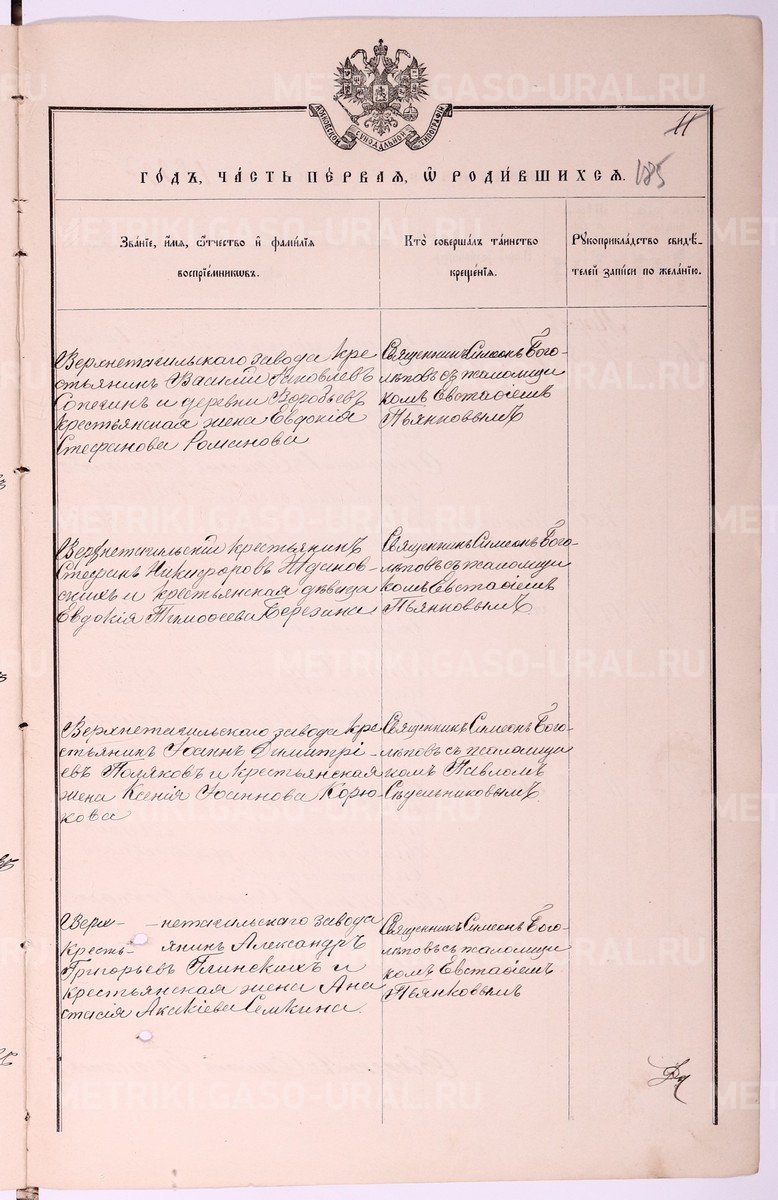 МОСКОВСКОЙ СѴНОДАЛЬНОЙ ТИПОГРАФІИ
11
ГО́ДЪ, ЧА́СТЬ ПЕ́РВАЯ, Ѡ РОДИ́ВШИХСЯ.
185
Зва́ніе, и҆́мя, ѻ҆́тчество и҆ фами́лія
воспріе́мниковъ.
Кто̀ соверша́лъ та́инство
креще́нія.
Рꙋкоприкла́дство свидѣ́-
телей за́писи по жела́нію.
Верхнетагильскаго завода кре
стьянинъ Василій Яковлевъ
Сопегинъ и деревни Воробьевъ
крестьянская жена Евдокія
Стефанова Романова
Священникъ Симеонъ Бого-
лѣповъ съ псаломщи
комъ Евстафіемъ
Пьянковымъ
Верхнетагильскій крестьянинъ
Стефанъ Никифоровъ Ждановъ
скихъ и крестьянская дѣвица
Евдокія Тимофеева Березина
Священникъ Симеонъ Бого-
лѣповъ съ псаломщи
комъ Евстафіемъ
Пьянковымъ
Верхнетагильскаго завода кре
стьянинъ Іоаннъ Димитрі-
евъ Поляковъ и крестьянская
жена Ксенія Іоаннова Корю-
кова
Священникъ Симеонъ Бого-
лѣповъ съ псаломщи
комъ Павломъ
Сѣдельниковымъ
Верх- -нетагильскаго завода
кресть- янинъ Александръ
Григорьевъ Глинскихъ и
крестьянская жена Ана
стасія Акакіева Семкина.
Священникъ Симеонъ Бого-
лѣповъ съ псаломщи
комъ Евстафіемъ
Пьянковымъ
METRIKI.GASO-URAL.RU